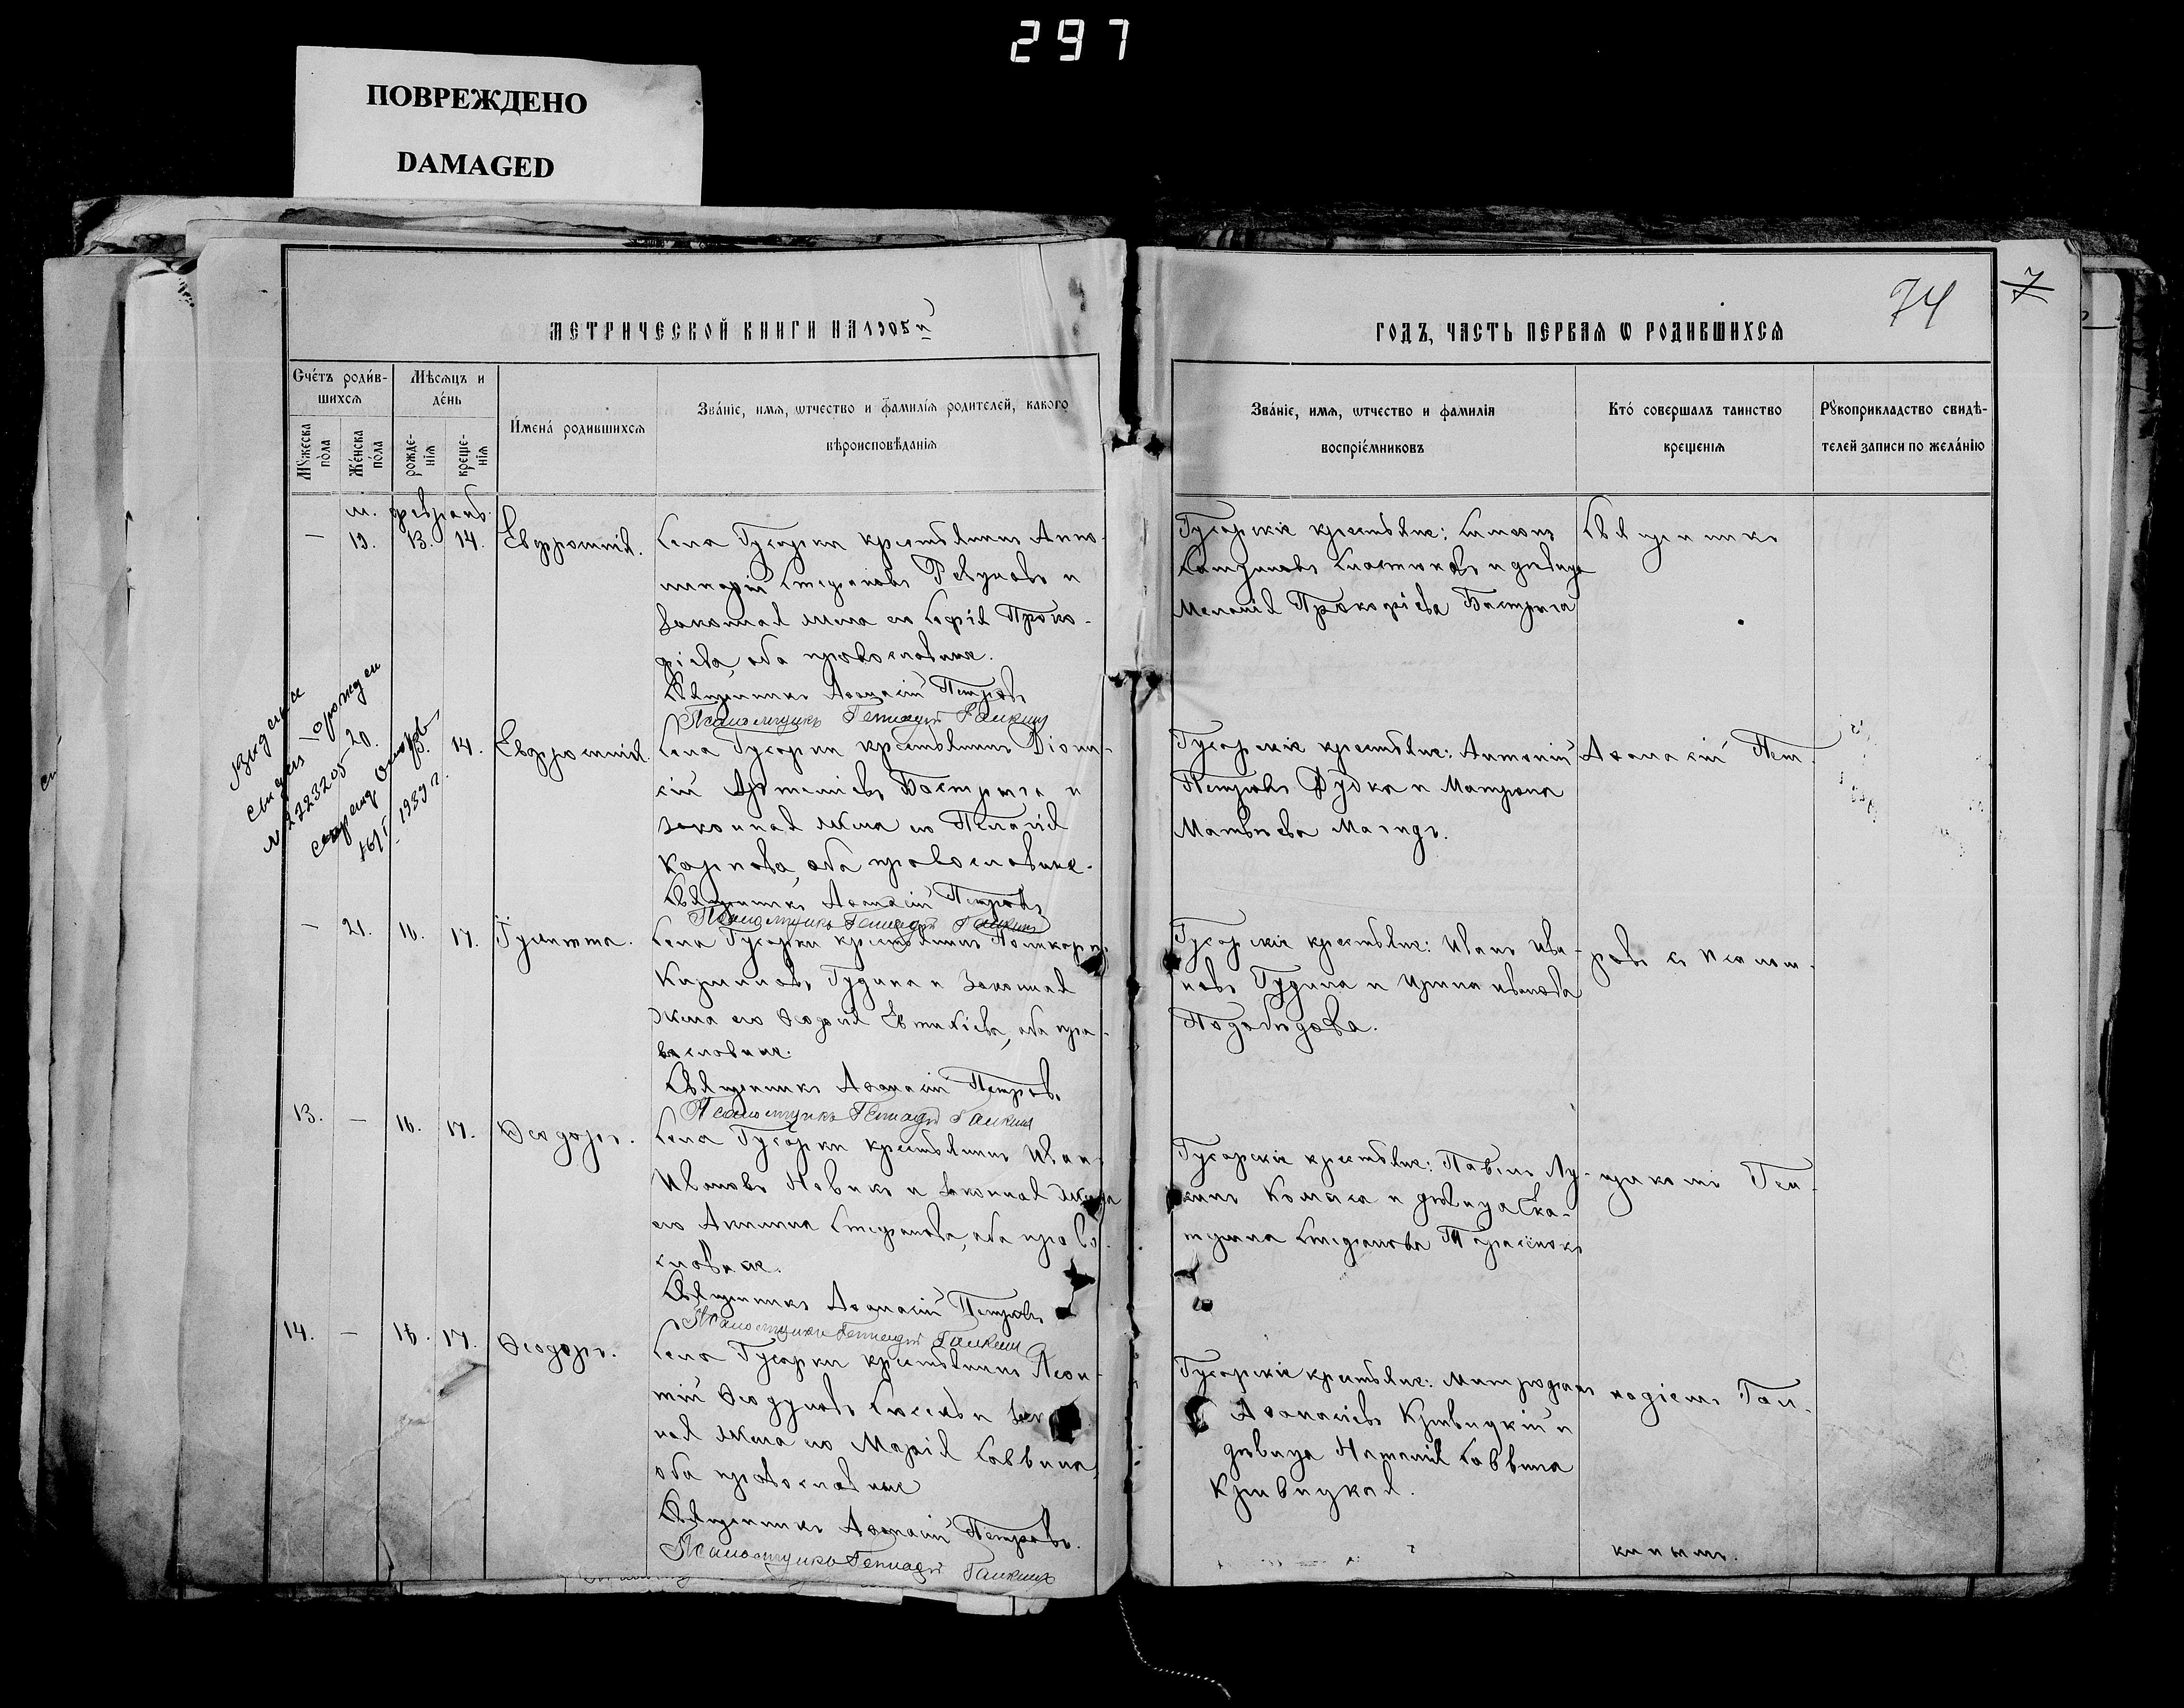 297
ПОВРЕЖДЕНО
DAMAGED
74
7
МЕТРИЧЕСКОЙ КНИГИ НА 1905 й
ГОДЪ, ЧАСТЬ ПЕРВАЯ Ѡ РОДИВШИХСЯ
Счетъ родив-
шихся
Мѣсяцъ и
день
Мужеска
пола
Женска
пола
рожде-
нія
креще-
нія
Имена родившихся
Званіе, имя, ѡтчество и фамилія родителей, какого
вѣроисповѣданія
Званіе, имя, ѡтчество и фамилія
воспріемниковъ
Кто совершалъ таинство
крещенія
Рукоприкладство свидѣ-
телей записи по желанію
м. февраль.
— 19. 13. 14. Евфросинія.
Села Гусарки крестьянинъ
Стефановъ Ревуновъ и
законная жена его Софія Проко-
фіева, оба православные.
Священникъ Аѳанасій Петровъ
Псаломщикъ Геннадій Галкинъ
Гусарскіе крестьяне: Симеонъ
и дѣвица
Меланія Прокофіева Бастрыга
Священникъ
20. 13. 14. Евфросинія.
Села Гусарки крестьянинъ Діони-
сій Артеміевъ Бастрыга и
законная жена его Пелагія
Карпова, оба православные.
Священникъ Аѳанасій Петровъ
Псаломщикъ Геннадій Галкинъ
Гусарскіе крестьяне: Антоній
Петровъ Дудка и Матрона
Матвѣева
Аѳанасій Пет-
№ 2223205
1939 г.
— 21. 16. 17. Іулитта.
Села Гусарки крестьянинъ Поликарпъ
Кирилловъ Гудина и законная
жена его Ѳеодосія Евтихіева, оба пра-
вославные.
Священникъ Аѳанасій Петровъ
Псаломщикъ Геннадій Галкинъ
Гусарскіе крестьяне: Иванъ Ива-
новъ Гудина и Ирина Иванова
Подобѣдова.
ровъ съ псалом-
13. — 16. 17. Ѳеодоръ.
Села Гусарки крестьянинъ Иванъ
Ивановъ Новикъ и законная жена
его Акилина Стефанова, оба право-
славные.
Священникъ Аѳанасій Петровъ
Псаломщикъ Геннадій Галкинъ
Гусарскіе крестьяне: Павелъ Лу-
кинъ и дѣвица Ека-
терина Стефанова
щикомъ Ген-
14. — 16. 17. Ѳеодоръ.
Села Гусарки крестьянинъ Леон-
тій и закон-
ная жена его Марія Саввина,
оба православные
Священникъ Аѳанасій Петровъ.
Псаломщикъ Геннадій Галкинъ
Гусарскіе крестьяне: Митрофанъ
Аѳанасіевъ Кривицкій и
дѣвица Наталія Саввина
Кривицкая.
надіемъ Гал-
кинымъ.